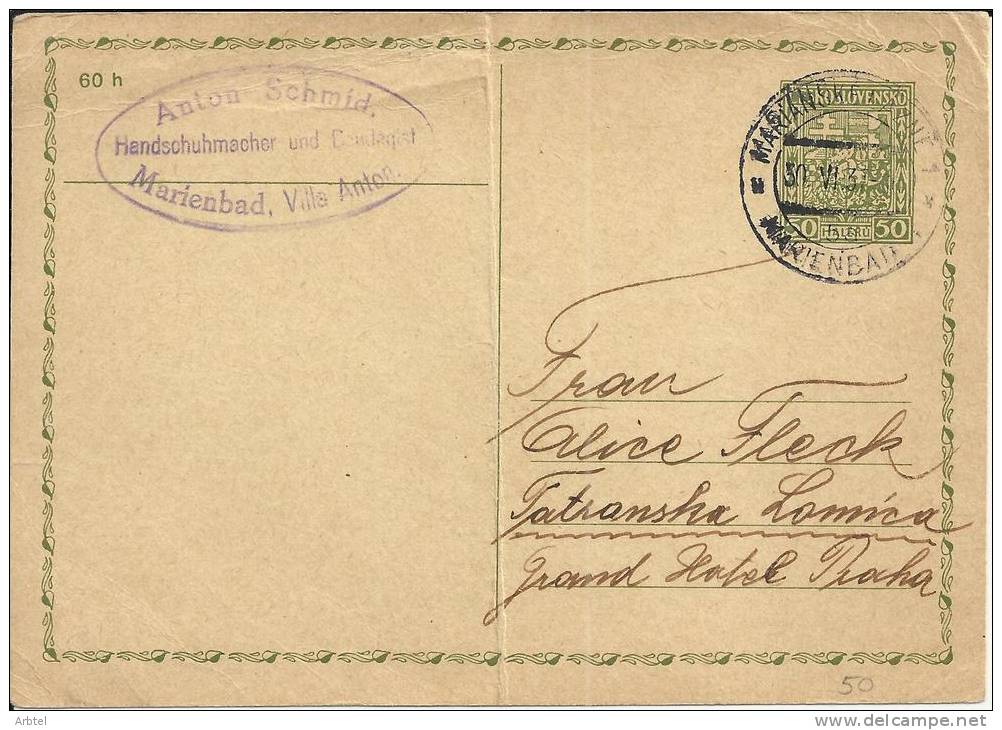 60 h
Anton Schmid,
Handschuhmacher und Bandagist
Marienbad, Villa Anton.
ČESKOSLOVENSKO
50 HALÉŘŮ 50
MARIÁNSKÉ LÁZNĚ 1
30. VI. 3
MARIENBAD 1
Frau
Alice Fleck
Tatranska Lomnica
Grand Hotel Praha
50
Arbtel
www.delcampe.net